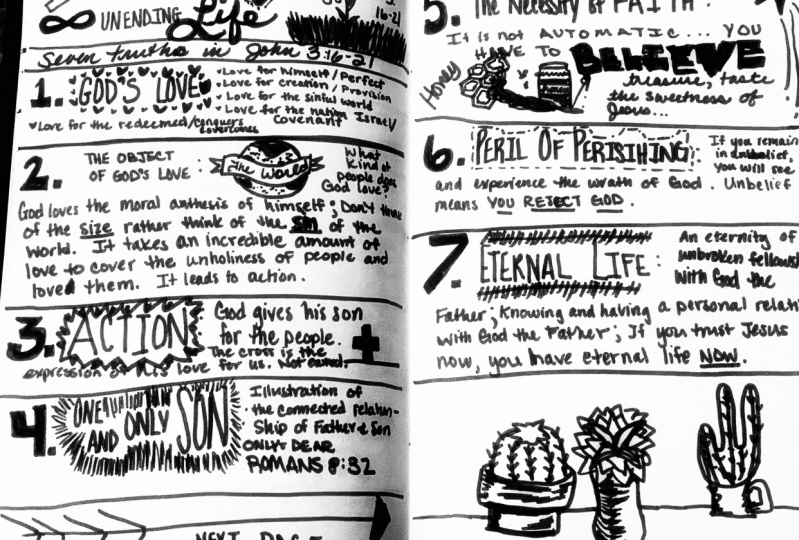 UNENDING Life
16-21
Seven truths in John 3:16-21
1. GOD'S LOVE
Love for himself / Perfect
Love for creation / Provision
Love for the sinful world
Love for the nation Israel/
Covenant
Love for the redeemed/conquers
overcomes
2. THE OBJECT
OF GOD'S LOVE :
The World
What
kind of
people does
God love?
God loves the moral anthesis of himself; Don't think
of the size rather think of the sin of the
world. It takes an incredible amount of
love to cover the unholiness of people and
loved them. It leads to action.
3. ACTION
God gives his son
for the people.
The cross is the
expression of his love for us. Not earned.
4. ONE AND ONLY SON
Illustration of
the connected relation-
ship of Father & Son
ONLY = DEAR
ROMANS 8:32
NEXT PAGE
5. The Necessity of FAITH:
It is not AUTOMATIC... YOU
HAVE TO BELIEVE
Honey
treasure, taste
the sweetness of
Jesus...
6. PERIL OF PERISIHING:
If you remain
in unbelief,
you will see
and experience the wrath of God. Unbelief
means YOU REJECT GOD.
7. ETERNAL LIFE:
An eternity of
unbroken fellows
with God the
Father; Knowing and having a personal relati
with God the Father; If you trust Jesus
now, you have eternal life NOW.